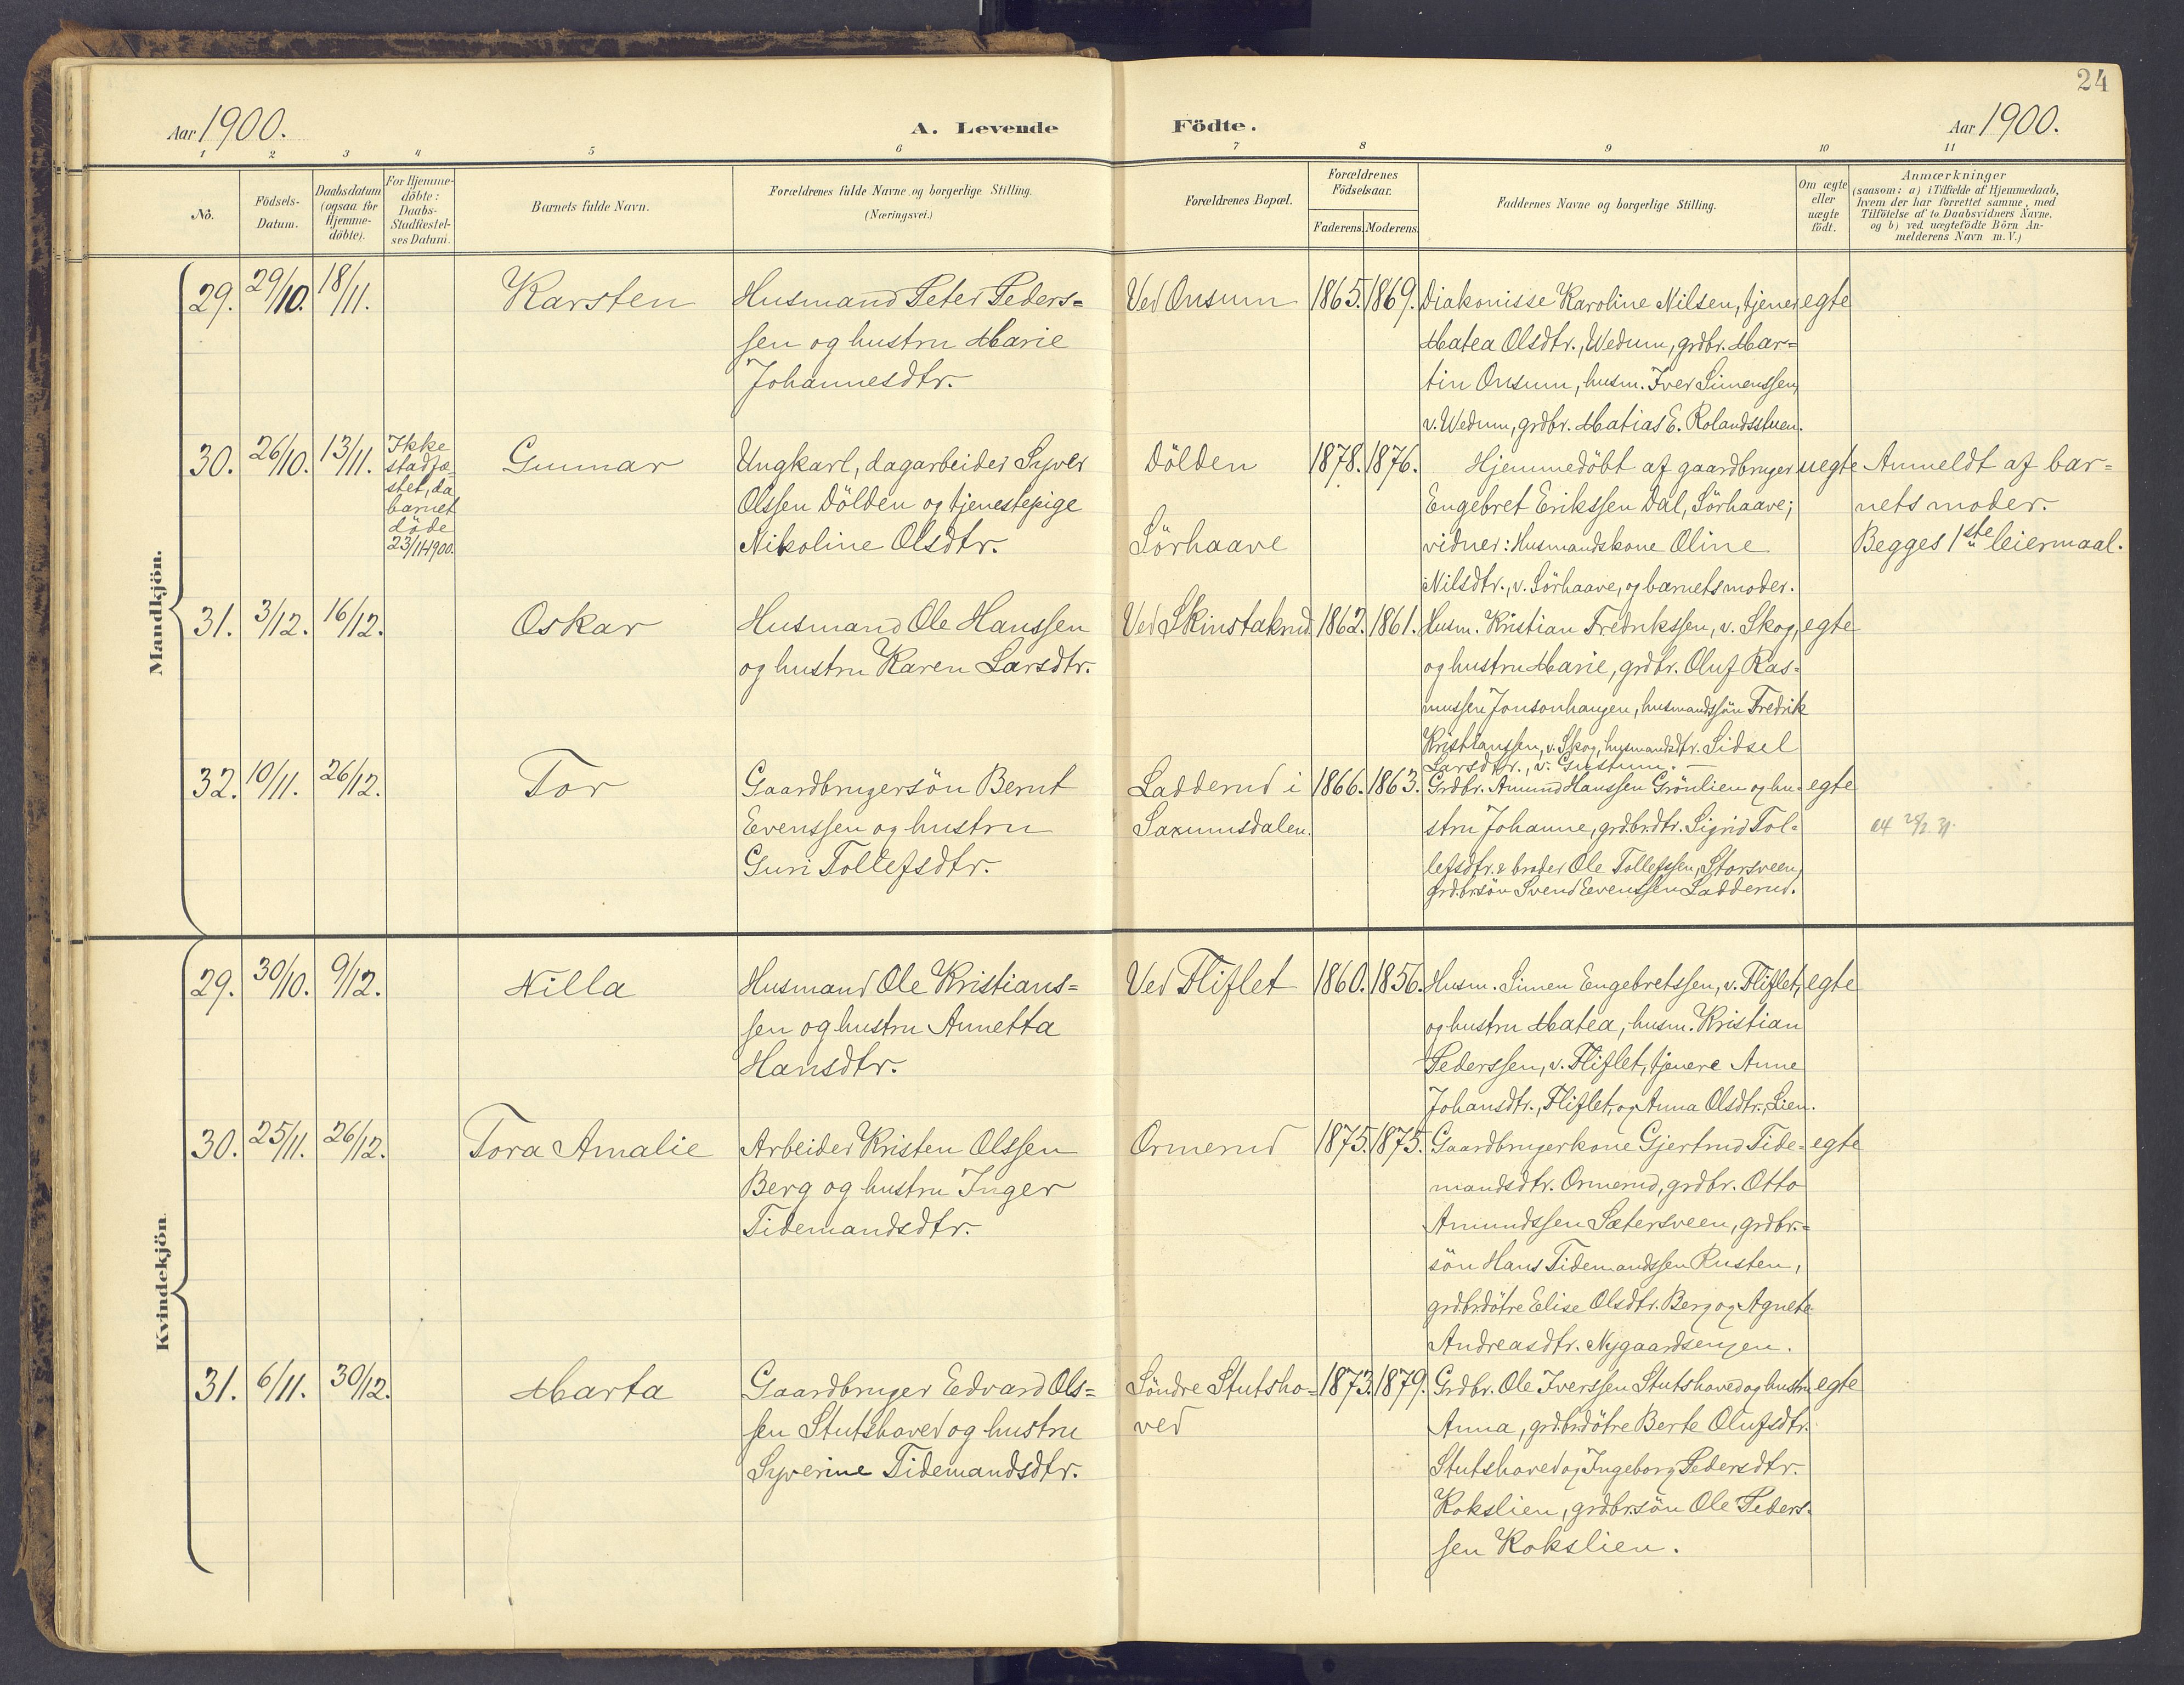 24
Aar 1900.
A. Levende Födte.
Aar 1900.
1 2 3 4 5 6 7 8 9 10 11
Nö.
Födsels-
Datum.
Daabsdatum
(ogsaa for
Hjemme-
döbte).
For Hjemme-
döbte:
Daabs-
Stadfæstel-
ses Datum.
Barnets fulde Navn.
Forældrenes fulde Navne og borgerlige Stilling.
(Næringsvei.)
Forældrenes Bopæl.
Forældrenes
Födselsaar.
Faderens. Moderens.
Faddernes Navne og borgerlige Stilling.
Om ægte
eller
uægte
födt.
Anmærkninger
(saasom: a) i Tilfælde af Hjemmedaab,
hvem der har forrettet samme, med
Tilföielse af to Daabsvidners Navne.
og b) ved uægtefödte Börn An-
melderens Navn m. V.)
Mandkjön.
29. 29/10. 18/11.
Karsten
Husmand Peter Peders=
sen og hustru Marie
Johannesdtr.
Ved Onsum
1865. 1869.
Diakonisse Karoline Nilsen, tjener
Matea Olsdtr., Wedum, grdbr. Mar=
tin Onsum, husm. Iver Simenssen,
v. Wedum, grdbr. Matias E. Rolandsstuen.
egte
30. 26/10. 13/11.
Ikke
stadfæ=
stet, da
barnet
döde
23/11-1900.
Gunnar
Ungkarl, dagarbeider Syver
Olssen Dölden og tjenestepige
Nikoline Olsdtr.
Dölden
Sörhaave
1878. 1876.
Hjemmedöbt af gaardbruger
Engebret Erikssen Dal, Sörhaave;
vidner: Husmandskone Oline
Nilsdtr., v. Sörhaave, og barnets moder.
uegte
Anmeldt af bar=
nets moder.
Begges 1ste leiermaal.
31. 3/12. 16/12.
Oskar
Husmand Ole Hanssen
og hustru Karen Larsdtr.
Ved Skinstakrud
1862. 1861.
Husm. Kristian Fredrikssen, v. Skog,
og hustru Marie, grdbr. Oluf Ras=
mussen Jonsonhaugen, husmandssön Fredrik
Kristianssen, v. Skog, husmandsdtr. Sidsel
Larsdtr., v. Gustum. —
egte
32. 10/11. 26/12.
Tor
Gaardbrugersön Bernt
Evenssen og hustru
Guri Tollefsdtr.
Ladderud i
Saxumsdalen.
1866. 1863.
Grdbr. Amund Hanssen Grönlien og hu=
stru Johanne, grdbr.dtr. Sigrid Tol=
lefsdtr. & broder Ole Tollefssen, Storsveen,
grdbr.sön Svend Evenssen Ladderud.
egte
Kvindekjön.
29. 30/10. 9/12.
Nilla
Husmand Ole Kristians=
sen og hustru Annetta
Hansdtr.
Ved Fliflet
1860. 1856.
Husm. Simen Engebretssen, v. Fliflet,
og hustru Matea, husm. Kristian
Pederssen, v. Fliflet, tjenere Anne
Johansdtr., Fliflet, og Anna Olsdtr., Lien.
egte
30. 25/11. 26/12.
Tora Amalie
Arbeider Kristen Olssen
Berg og hustru Inger
Tidemandsdtr.
Ormerud
1875. 1875.
Gaardbrugerkone Gjertrud Tide=
mandsdtr. Ormerud, grdbr. Otto
Amundssen Sætersveen, grdbr.=
sön Hans Tidemandssen Rusten,
grdbr.dötre Elise Olsdtr. Berg og Agnete
Andreasdtr. Nygaardsengen.
egte
31. 6/11. 30/12.
Marta
Gaardbruger Edvard Ols=
sen Stutshoved og hustru
Syverine Tidemandsdtr.
Söndre Stutsho=
ved
1873. 1879.
Grdbr. Ole Iverssen Stutshoved og hustru
Anna, grdbr.dötre Berte Olufsdtr.
Stutshoved og Ingeborg Pedersdtr.
Kokslien, grdbr.sön Ole Peders=
sen Kokslien.
egte